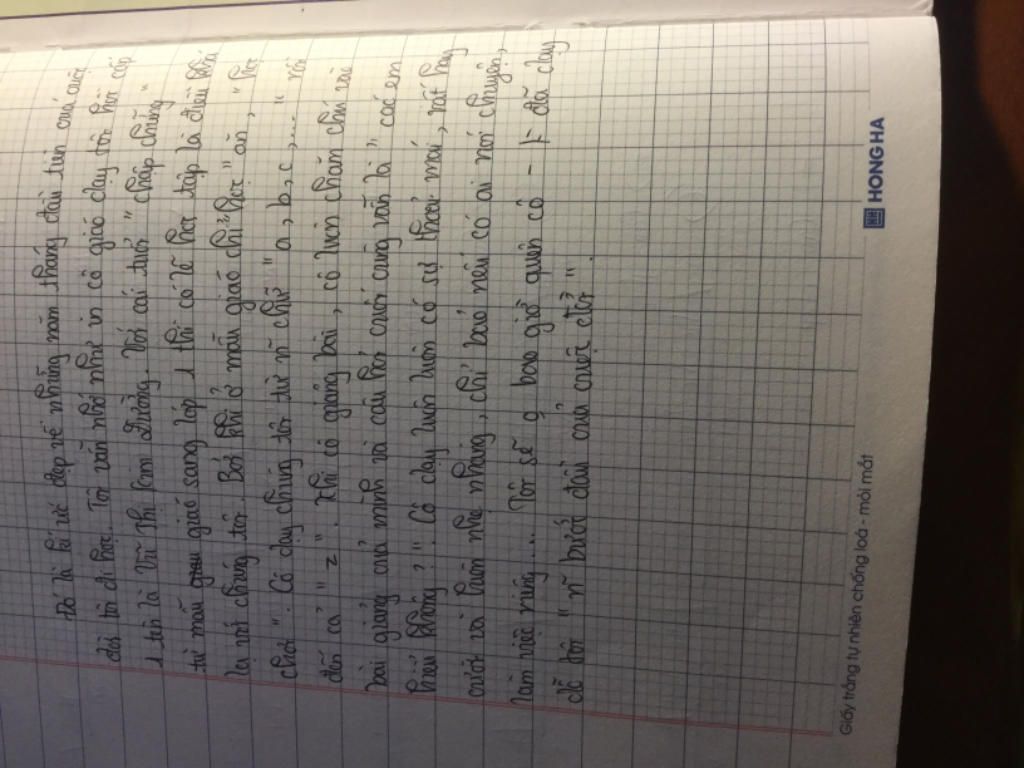 Đó là kí ức đẹp về những năm tháng đầu tiên của cuộc
đời tôi đi học. Tôi vẫn nhớ như in cô giáo dạy tôi hồi cấp
1 tên là Vũ Thị Kim Đường. Với cái tuổi " chập chững "
từ mẫu giáo sang lớp 1 thì có lẽ học tập là điều khó
lạ với chúng tôi. Bởi khi ở mẫu giáo chỉ "học" ăn, " học
chơi ". Cô dạy chúng tôi từ n chữ " a, b, c ,.... " rồi
đến cả " z ". Khi cô giảng bài, cô luôn chăm chú vào
bài giảng của mình và câu hỏi cuối cùng vẫn là " các em
hiểu không ? ". Cô dạy luôn luôn có sự thoải mái, rất hay
cười và luôn nhẹ nhàng, chỉ bảo nếu có ai nói chuyện,
làm việc riêng.... Tôi sẽ o bao giờ quên cô - ng đã dạy
dỗ tôi " n bước đầu của cuộc đời ".
HONG HA
Giấy trắng tự nhiên chống loá - mỏi mắt